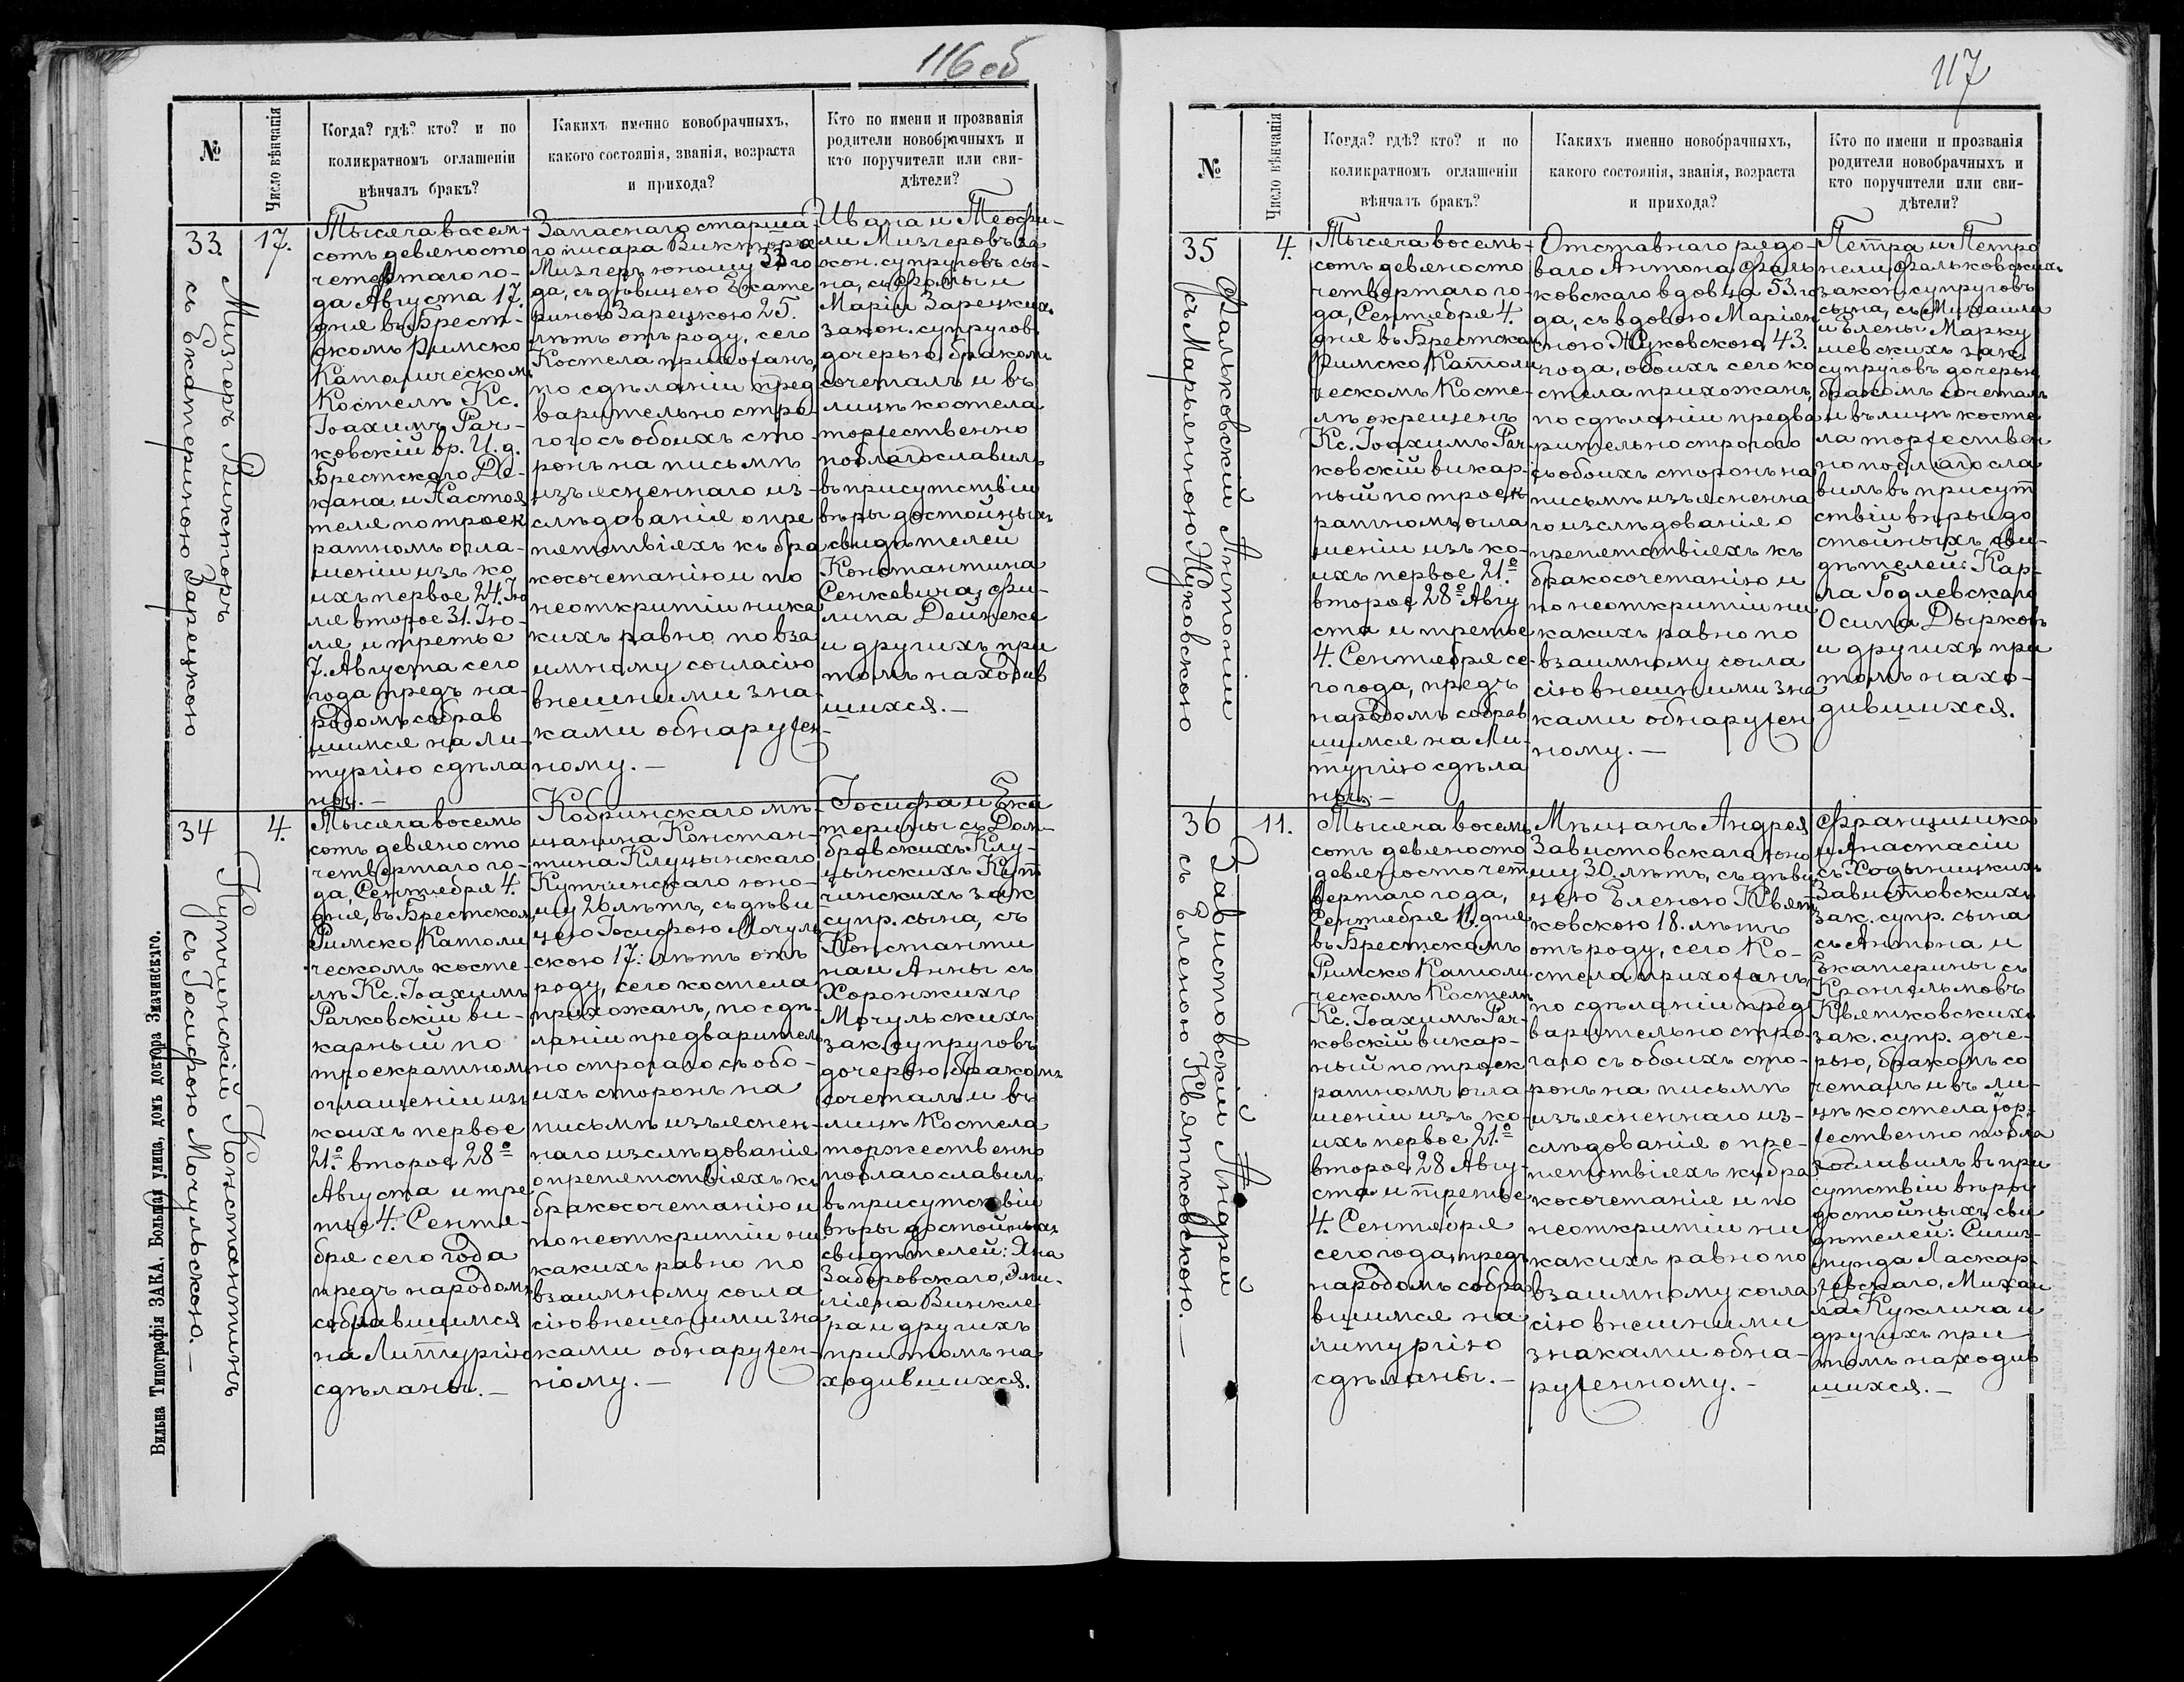 116 об
№
Число вѣнчанія
Когда? гдѣ? кто? и по
коликратномъ оглашеніи
вѣнчалъ бракъ?
Какихъ именно новобрачныхъ,
какого состоянія, званія, возраста
и прихода?
Кто по имени и прозванія
родители новобрачныхъ и
кто поручители или сви-
дѣтели?
33.
Мизгеръ Викторъ
съ Екатериною Зарецкою
17.
Тысяча восем-
сотъ девяносто
четвертаго го-
да Августа 17.
дня въ Брест-
скомъ Римско
Католическомъ
Костелѣ Кс.
Іоахимъ Рач-
ковскій вр. И. д.
Брестскаго Де-
кана и Настоя
теля по троек
ратномъ огла-
шеніи изъ ко
ихъ первое 24. Ію
ля второе 31. Ію-
ля и третье
7. Августа сего
года предъ на-
родомъ собрав
шимся на ли-
тургію сдѣла
ны.-
Запаснаго старша
го писара Виктора
Мизгеръ юношу 33 го
да, съ дѣвицею Екате
риною Зарецкою 25.
лѣтъ отъ роду, сего
Костела прихожанъ,
по сдѣланіи пред
варительно стро-
гого съ обоихъ сто-
ронъ на письмѣ
изъясненнаго из-
слѣдованія о пре
пятствіяхъ къ бра
косочетанію и по
неоткрытіи ника
кихъ равно по вза
имному согласію
внешними зна-
ками обнаружен-
ному.-
Ивана и Теофи-
ли Мизгеровъ за
кон. супруговъ сы-
на, съ Фомы и
Маріи Зарецкихъ
закон. супругов
дочерью, бракомъ
сочеталъ и въ
лицѣ костела
торжественно
поблагославилъ
въ присутствіи
вѣры достойныхъ
свидѣтелей
Константина
Сенкевича, Фи-
липа Дейнеке
и другихъ при
томъ находив
шихся.-
34
Кутчинскій Константинъ
съ Іосифою Мочульскою.-
4.
Тысяча восемь
сотъ девяносто
четвертаго го-
да, Сентября 4.
дня, въ Брестском
Римско Католи
ческомъ косте-
лѣ Кс. Іоахимъ
Рачковскій ви-
карный по
троекратномъ
оглашеніи изъ
коихъ первое
21.º второе 28º
Августа и тре
тье 4. Сентя-
бря сего года
предъ народомъ
собравшимся
на Литургію
сдѣланы.-
Кобринскаго мѣ-
щанина Констан-
тина Клуцынскаго
Кутчинскаго юно-
шу 26 лѣтъ, съ дѣви
цею Іосифою Мочуль
скою 17: лѣтъ отъ
роду, сего костела
прихожанъ, по сдѣ-
ланіи предварител
но строгаго съ обо-
ихъ сторонъ на
письмѣ изъяснен-
наго изслѣдованія
о препятствіяхъ къ
бракосочетанію и
по неоткрытіи ни
какихъ равно по
взаимному согла
сію внешними зна
ками обнаружен-
ному.-
Іосифа и Ека
терины съ Дом-
бровскихъ Клу-
цынскихъ Кут
чинскихъ зак
супр. сына, съ
Константи
на и Анны съ
Хоронжихъ
Мочульскихъ
зак. супруговъ
дочерью бракомъ
сочеталъ и въ
лицѣ Костела
торжественно
поблагославилъ
въ присутствіи
вѣры достойныхъ
свидѣтелей: Яна
Заберовскаго, Эми-
ліяна Винкле
ра и другихъ
при томъ на
ходившихся.
Вильна Типографія ЗАКА, Большая улица, домъ доктора Значинскаго.
117
№
Число вѣнчанія
Когда? гдѣ? кто? и по
коликратномъ оглашеніи
вѣнчалъ бракъ?
Какихъ именно новобрачныхъ,
какого состоянія, званія, возраста
и прихода?
Кто по имени и прозванія
родители новобрачныхъ и
кто поручители или сви-
дѣтели?
35
Фальковскій Антоній
съ Марьянною Жуковскою
4.
Тысяча восемь-
сотъ девяносто
четвертаго го-
да, Сентября 4.
дня въ Брестском
Римско Католи
ческомъ Косте-
лѣ окрещенъ
Кс. Іоахимъ Рач
ковскій викар-
ный по троек
ратномъ огла
шеніи изъ ко-
ихъ первое 21.º
второе 28º Авгу
ста и третье
4. Сентября се-
го года, предъ
народомъ собрав
шимся на Ли-
тургію сдѣла
ны.-
Отставнаго рядо-
ваго Антона Фаль
ковскаго вдовца 53. го
да, съ вдовою Маріян
ною Жуковскою 43.
года, обоихъ сего ко
стела прихожанъ,
по сдѣланіи предва
рительно строгого
съ обоихъ сторонъ на
письмѣ изъяснена
го изслѣдованія о
препятствіяхъ къ
бракосочетанію и
по неоткрытіи ни
какихъ равно по
взаимному согла
сію внешними зна
ками обнаружен
ному.-
Петра и Петро
нели Фальковскихъ
закон. супруговъ
сына, съ Михаила
и Елены Марку
шевскихъ зак.
супруговъ дочерью
бракомъ сочеталъ
и въ лицѣ косте
ла торжествен
но поблагосла
вилъ въ присут
ствіи вѣры до
стойныхъ сви-
дѣтелей: Кар-
ла Годлевскаго
Осипа Дырковъ
и другихъ при
томъ нахо-
дившихся.
36
Завистовскій Андрей
съ Еленою Квятковскою.-
11.
Тысяча восемь
сотъ девяносто
девяносто чет
вертаго года,
Сентября 11. дня
въ Брестскомъ
Римско Католи
ческомъ Костелѣ
Кс. Іоахимъ Рач-
ковскій викар-
ный по троек
ратномъ огла
шеніи изъ ко-
ихъ первое 21.º
второе 28 Авгу
ста и третье
4. Сентября
сего года, предъ
народомъ собра
вшимся на
литургію
сдѣланы.-
Мѣщанъ Андрея
Завистовскаго юно
шу 30. лѣтъ, съ дѣви
цею Еленою Квят
ковскою 18. лѣтъ
отъ роду, сего Ко-
стела прихожанъ,
по сдѣланіи пред
варительно стро-
гаго съ обоихъ сто-
ронъ на письмѣ
изъясненнаго из-
слѣдованія о пре-
пятствіяхъ къ бра
косочетанія и по
неоткрытіи ни
какихъ равно по
взаимному согла
сію внешними
знаками обна-
руженному.-
Францишка
и Анастасіи
съ Ходыницкихъ
Завистовскихъ
зак. супр. сына
съ Антона и
Екатерины съ
Квятковскихъ
зак. супр. доче-
рью, бракомъ со
четалъ и въ ли-
цѣ костела тор-
жественно побла
гославилъ въ при
сутствіи вѣры
достойныхъ сви
дѣтелей: Сигиз-
мунда Ласкар-
жевскаго, Михаи
ла Куклича и
другихъ при
томъ находив
шихся.-